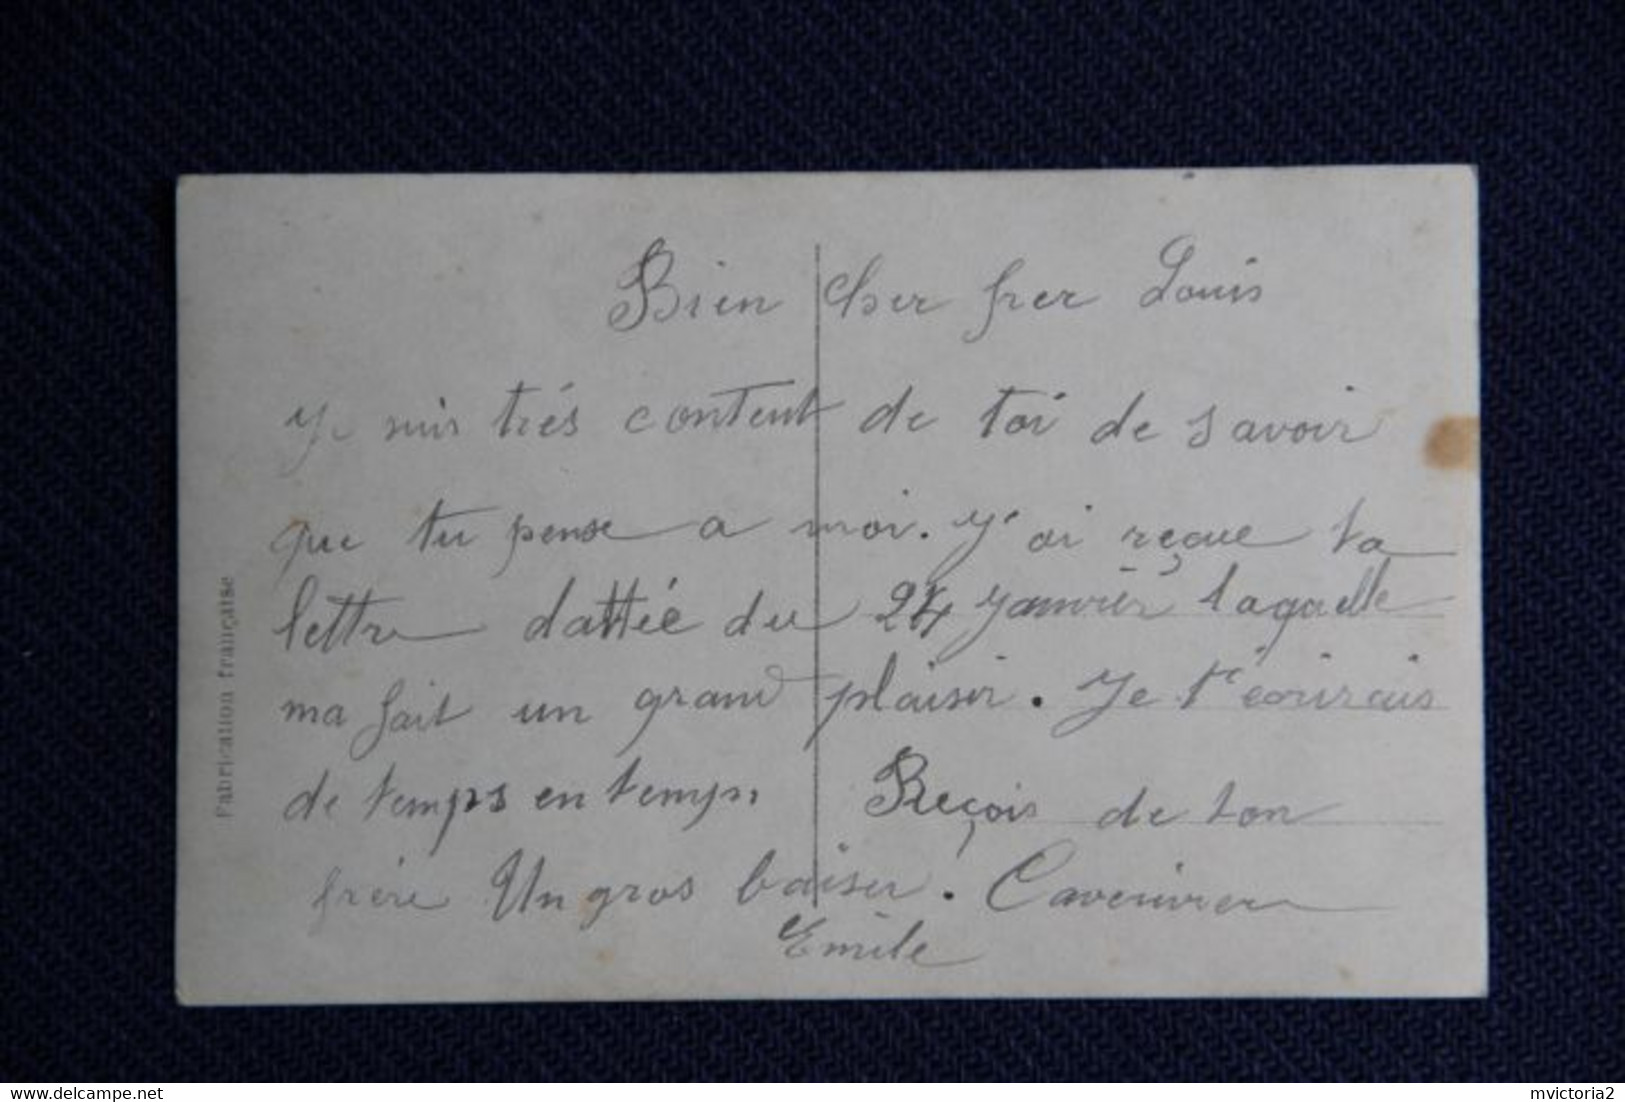 Bien cher frer Louis
Je suis trés content de toi de savoir
que tu pense a moi. J'ai reçue ta
lettre dattée du 24 Janvièr laquelle
ma fait un grand plaisir. Je t'écrirais
de temps en temps. Reçois de ton
frére Un gros baiser.
Emile
Fabrication française
mvictoria2